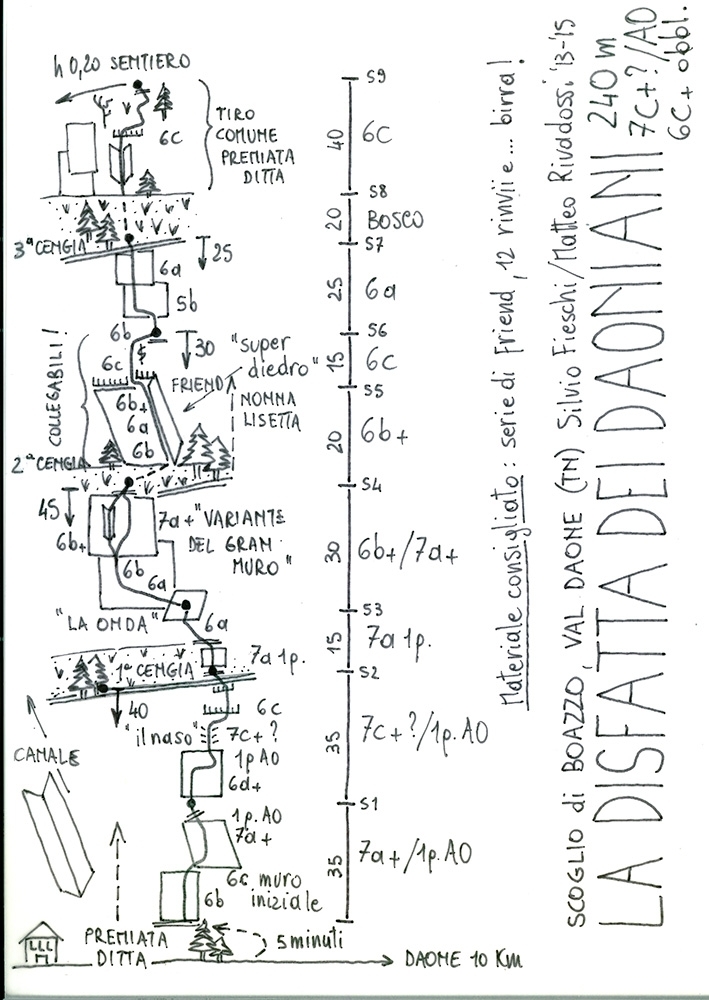 h 0,20 SENTIERO
6c
TIRO
COMUNE
PREMIATA
DITTA
3ª CEMGIA
25
6a
5b
6b
30
COLLEGABILI!
6c
FRIEND
"super
diedro"
NOMMA
LISETTA
6b+
6a
6b
2ª CEMGIA
45
6b+
7a+ "VARIANTE
DEL GRAN
MURO"
6b
6a
"LA OMDA"
6a
1ª CEMGIA
7a 1p.
40
6c
"il naso"
7c+?
1p A0
6a+
CAMALE
1p. A0
7a+
6c muro
iniziale
6b
PREMIATA
DITTA
5 minuti
DAOME 10 Km
S9
40
6C
S8
20
BOSCO
S7
25
6a
S6
15
6C
S5
20
6b+
S4
30
6b+/7a+
S3
15
7a 1p.
S2
35
7C+?/1p. A0
S1
35
7a+/1p. A0
Materiale consigliato: serie di friend, 12 rinvii e... birra!
SCOGLIO di BOAZZO, VAL DAONE (TN) Silvio Fieschi/Matteo Rivadossi '13-'15
LA DISFATTA DEI DAONIANI
240 m
7C+?/A0
6C+ obbl.